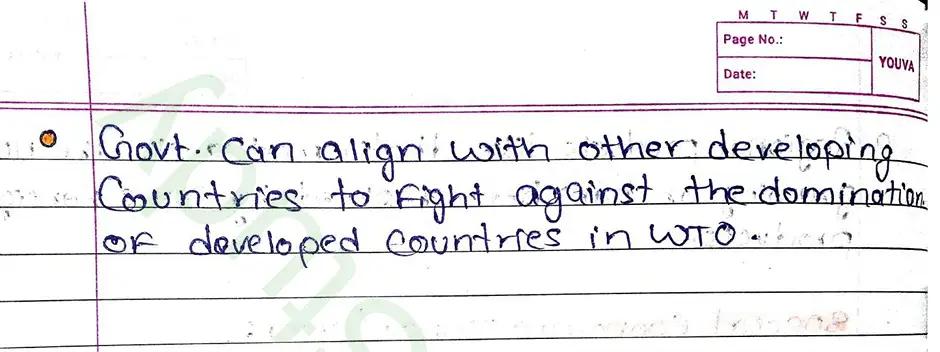 M T W T F S S
Page No.:
YOUVA
Date:
Govt. can align with other developing
Countries to fight against the domination
of developed countries in WTO.